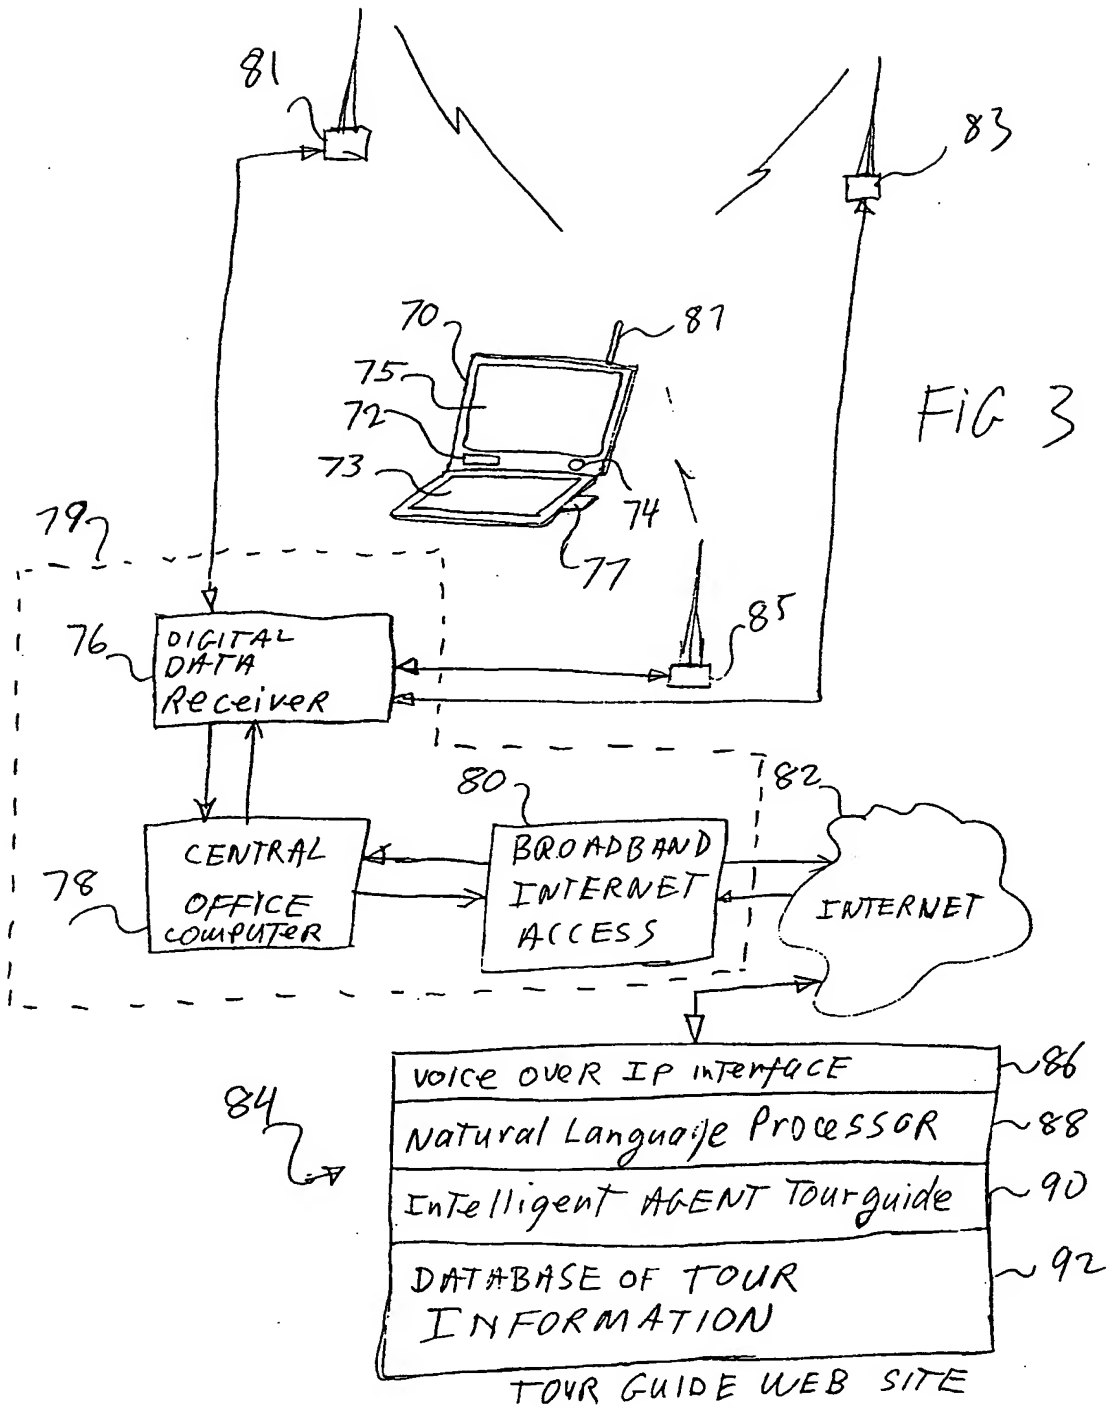 81
83
70
87
75
72
73
74
77
FIG 3
79
85
76
DIGITAL
DATA
Receiver
80
82
CENTRAL
OFFICE
COMPUTER
78
BROADBAND
INTERNET
ACCESS
INTERNET
84
VOICE OVER IP interFACE
86
Natural Language Processor
88
Intelligent AGENT Tourguide
90
DATABASE OF TOUR
INFORMATION
92
TOUR GUIDE WEB SITE